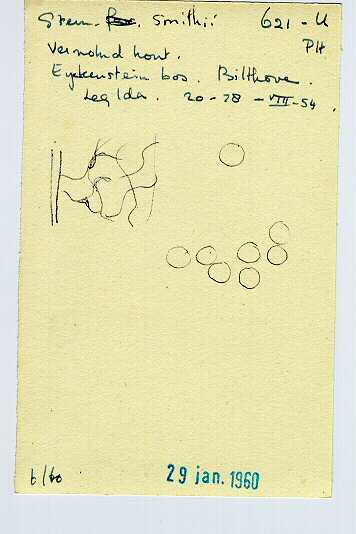 Stem. smithii 621-U
PH
Vermolmd hout.
Eyckenstein bos. Bilthoven.
Leg Ida. 20-28-VIII-54.
6/60
29 jan. 1960